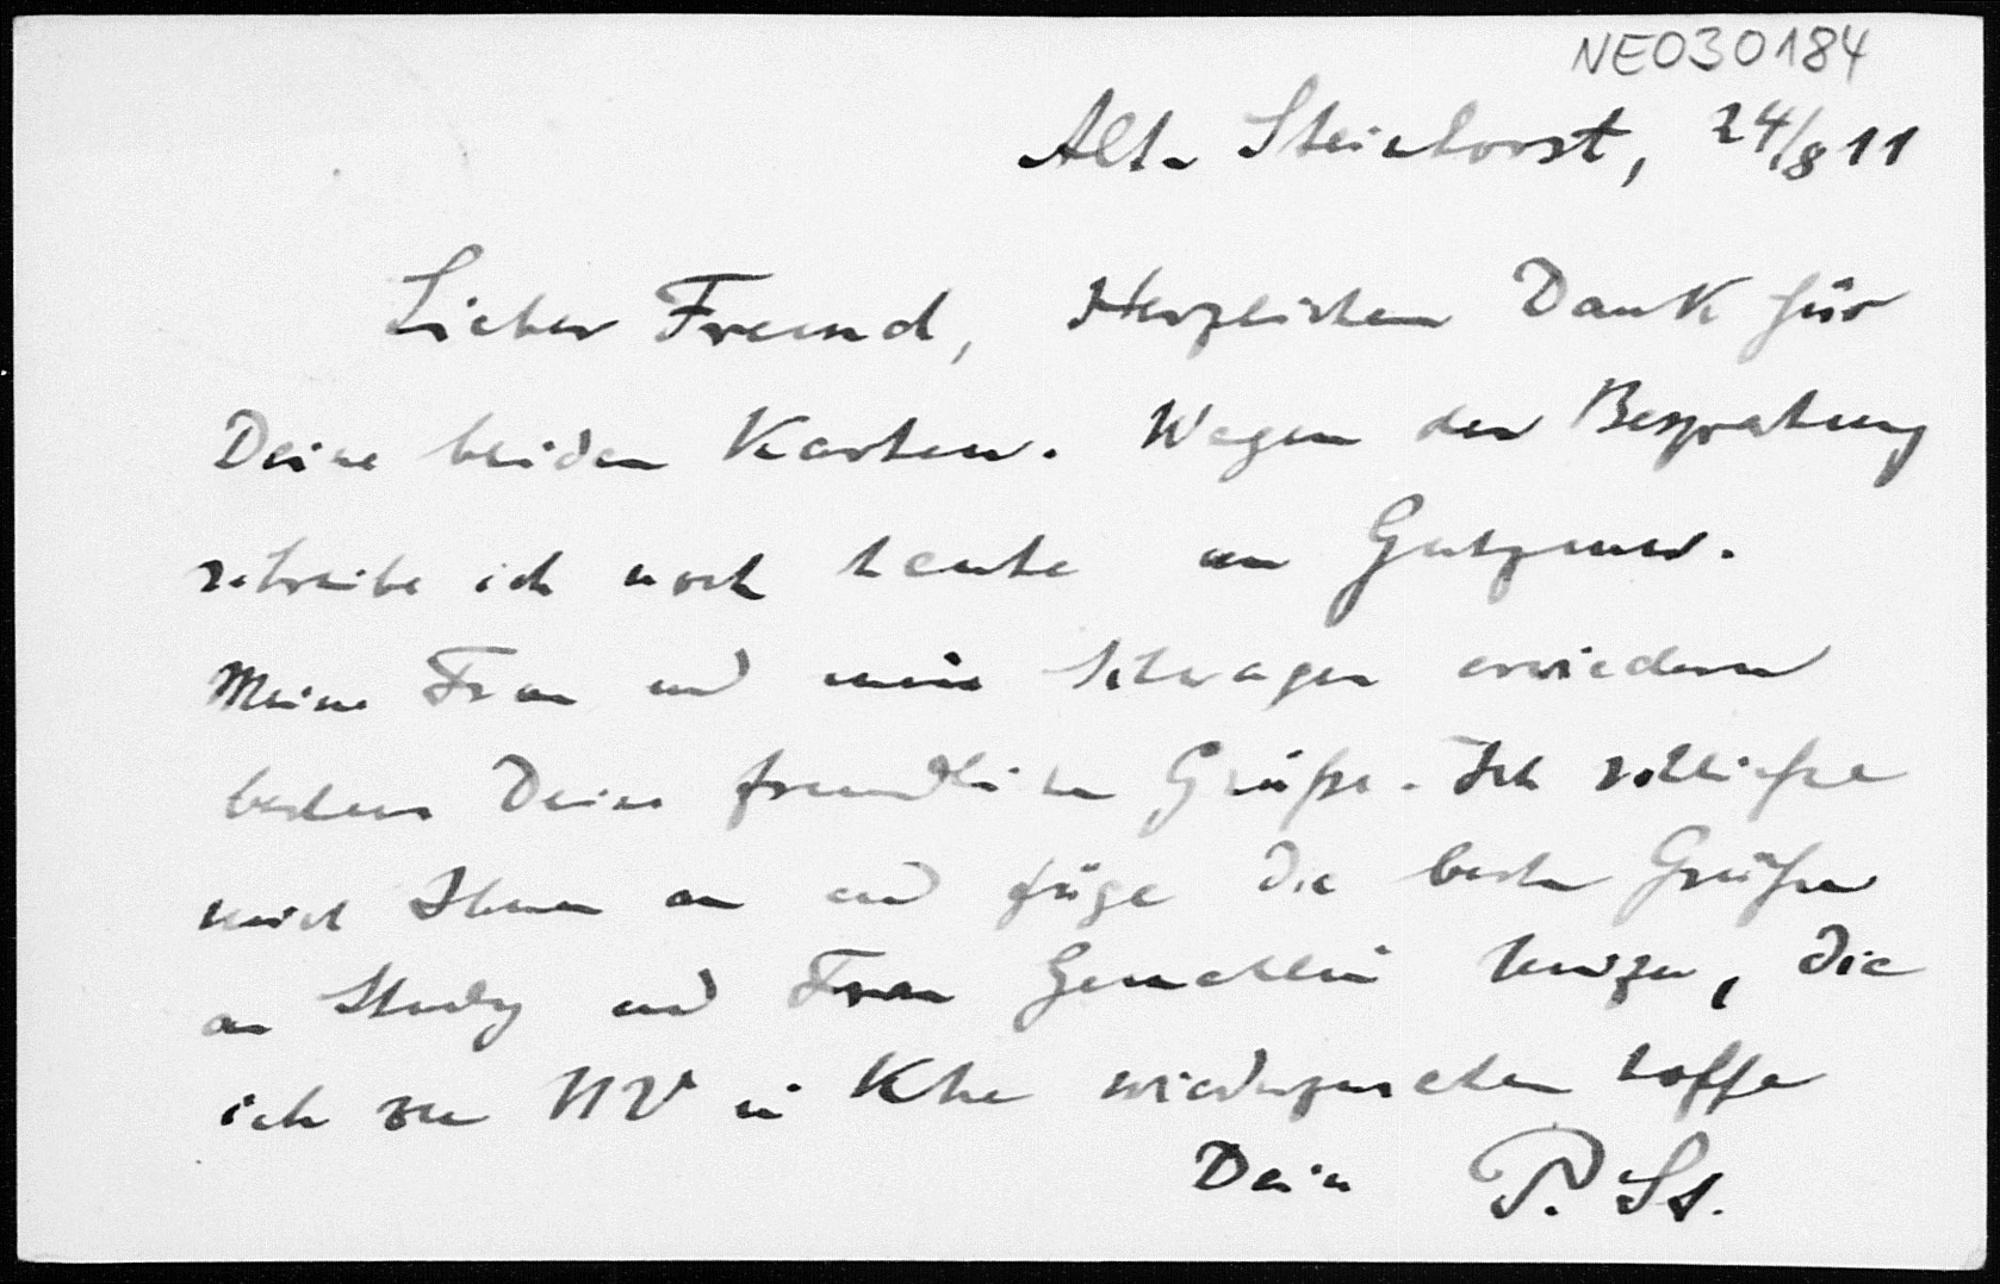 NE030184
Alt-Steinhorst, 24/8 11
Lieber Freund, Herzlichen Dank für
Deine beiden Karten. Wegen der Besprechung
schreibe ich noch heute an Gutzmer.
Meine Frau und mein Schwager erwiedern
bestens Deine freundlichen Grüße. Ich schließe
mich Ihnen an und füge die besten Grüße
an Study und Frau Gemahlin hinzu, die
ich zur NV in Khe wiederzusehen hoffe
Dein P. St.